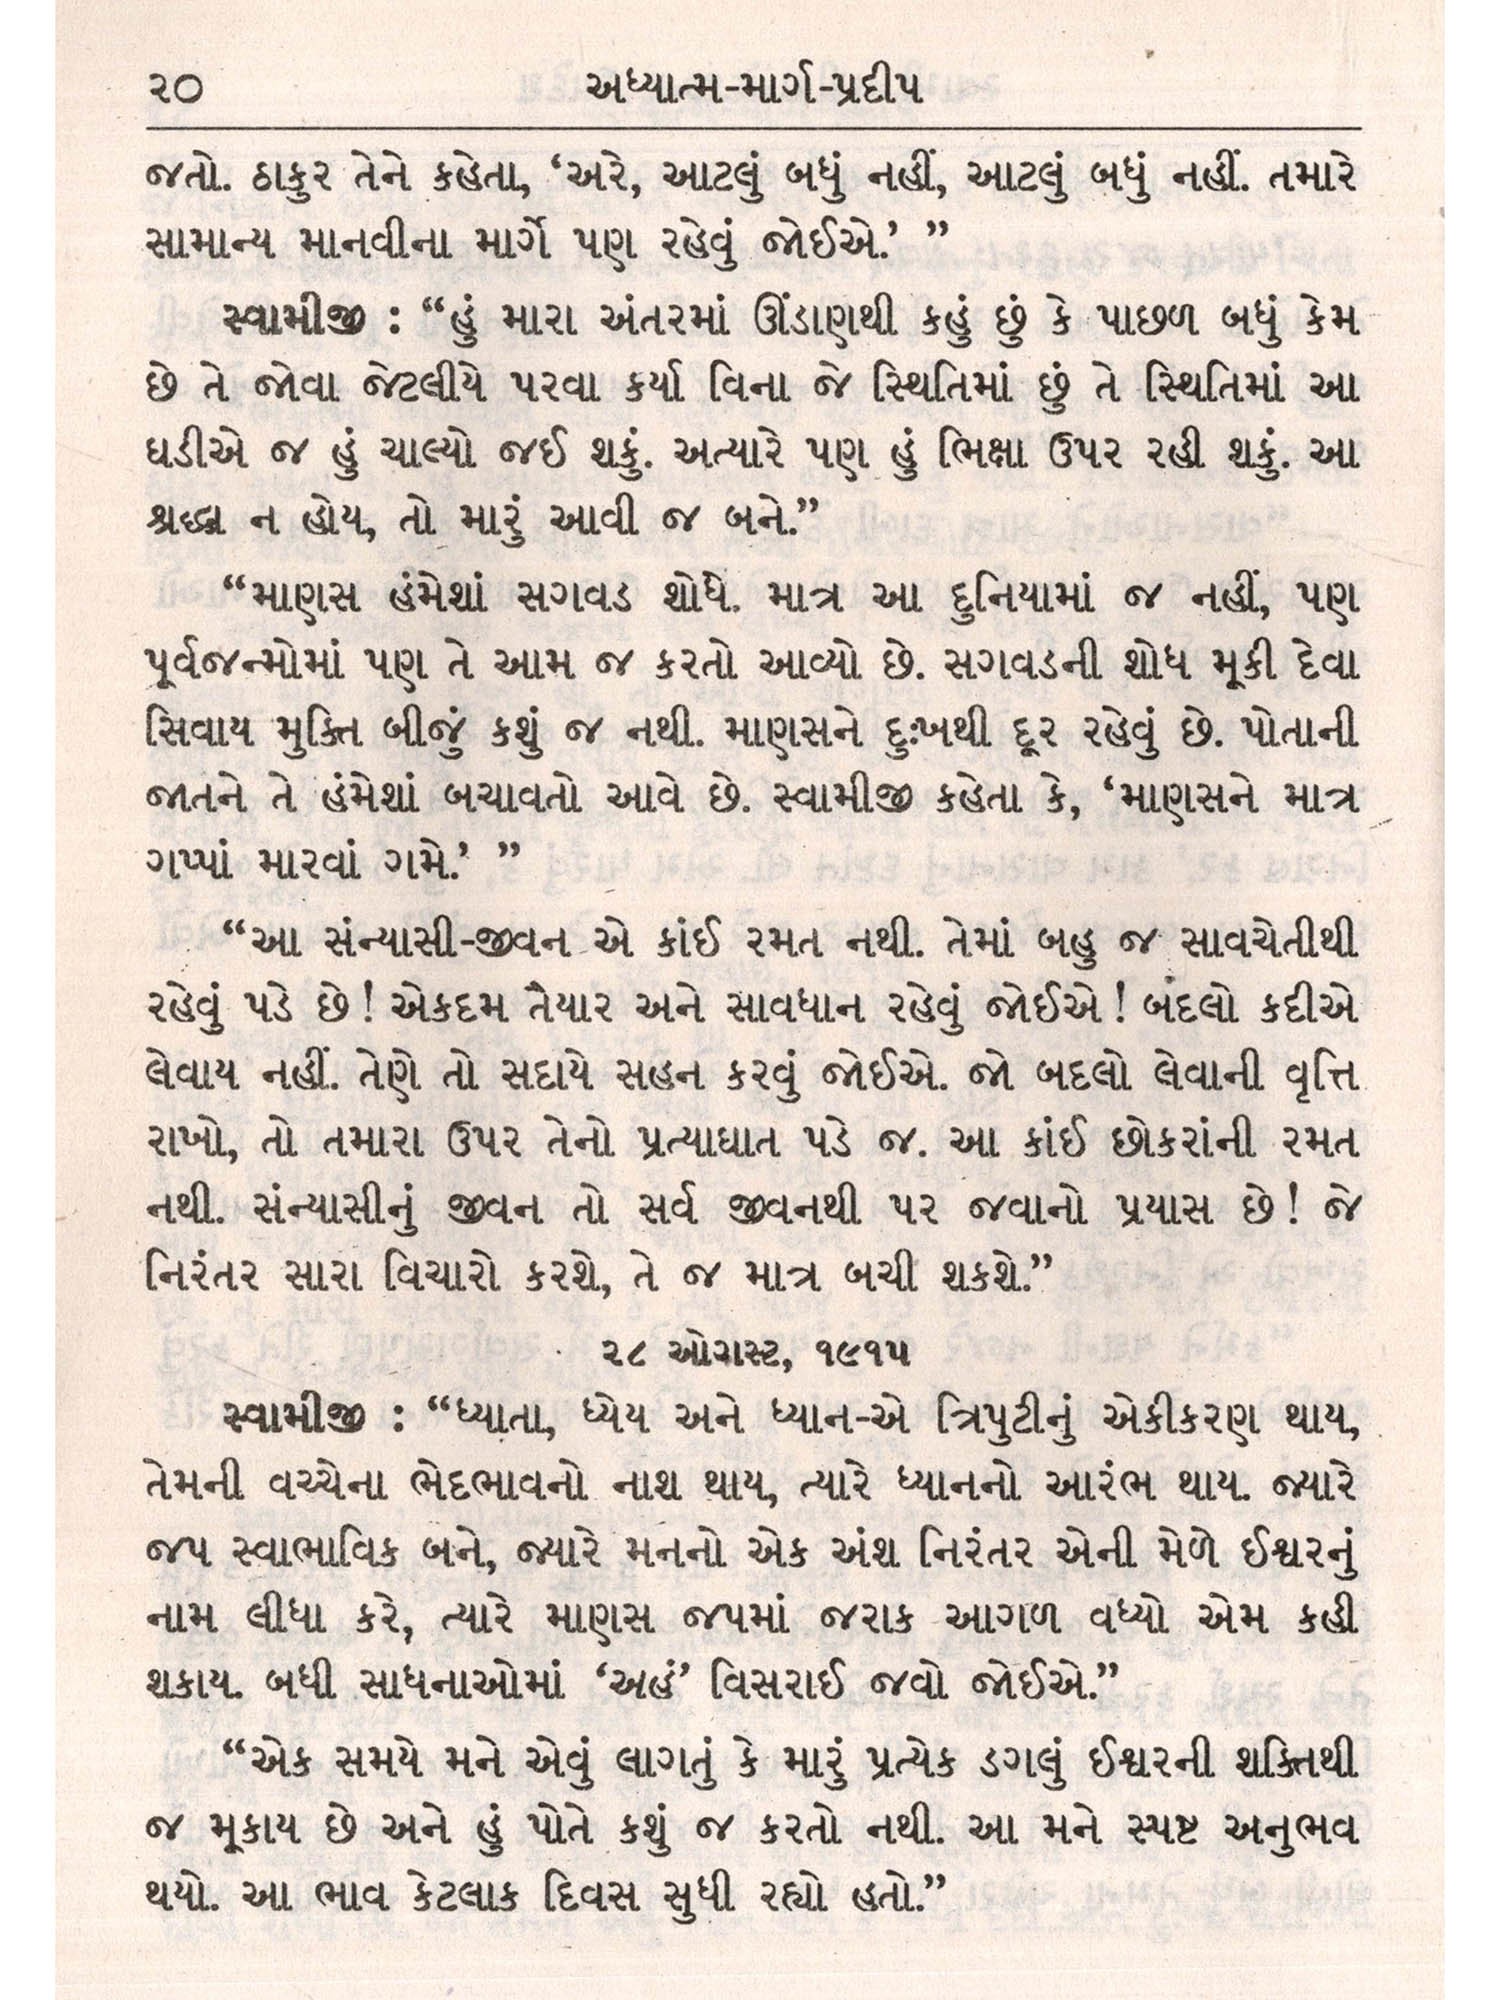 ૨૦ અધ્યાત્મ-માર્ગ-પ્રદીપ
જતો. ઠાકુર તેને કહેતા, ‘અરે, આટલું બધું નહીં, આટલું બધું નહીં. તમારે
સામાન્ય માનવીના માર્ગે પણ રહેવું જોઈએ.’ ”
સ્વામીજી : “હું મારા અંતરમાં ઊંડાણથી કહું છું કે પાછળ બધું કેમ
છે તે જોવા જેટલીયે પરવા કર્યા વિના જે સ્થિતિમાં છું તે સ્થિતિમાં આ
ઘડીએ જ હું ચાલ્યો જઈ શકું. અત્યારે પણ હું ભિક્ષા ઉપર રહી શકું. આ
શ્રદ્ધા ન હોય, તો મારું આવી જ બને.”
“માણસ હંમેશાં સગવડ શોધે. માત્ર આ દુનિયામાં જ નહીં, પણ
પૂર્વજન્મોમાં પણ તે આમ જ કરતો આવ્યો છે. સગવડની શોધ મૂકી દેવા
સિવાય મુક્તિ બીજું કશું જ નથી. માણસને દુઃખથી દૂર રહેવું છે. પોતાની
જાતને તે હંમેશાં બચાવતો આવે છે. સ્વામીજી કહેતા કે, ‘માણસને માત્ર
ગપ્પાં મારવાં ગમે.’ ”
“આ સંન્યાસી-જીવન એ કાંઈ રમત નથી. તેમાં બહુ જ સાવચેતીથી
રહેવું પડે છે! એકદમ તૈયાર અને સાવધાન રહેવું જોઈએ! બદલો કદીએ
લેવાય નહીં. તેણે તો સદાયે સહન કરવું જોઈએ. જો બદલો લેવાની વૃત્તિ
રાખો, તો તમારા ઉપર તેનો પ્રત્યાઘાત પડે જ. આ કાંઈ છોકરાંની રમત
નથી. સંન્યાસીનું જીવન તો સર્વ જીવનથી પર જવાનો પ્રયાસ છે! જે
નિરંતર સારા વિચારો કરશે, તે જ માત્ર બચી શકશે.”
૨૮ ઓગસ્ટ, ૧૯૧૫
સ્વામીજી : “ધ્યાતા, ધ્યેય અને ધ્યાન-એ ત્રિપુટીનું એકીકરણ થાય,
તેમની વચ્ચેના ભેદભાવનો નાશ થાય, ત્યારે ધ્યાનનો આરંભ થાય. જ્યારે
જપ સ્વાભાવિક બને, જ્યારે મનનો એક અંશ નિરંતર એની મેળે ઈશ્વરનું
નામ લીધા કરે, ત્યારે માણસ જપમાં જરાક આગળ વધ્યો એમ કહી
શકાય. બધી સાધનાઓમાં ‘અહં’ વિસરાઈ જવો જોઈએ.”
“એક સમયે મને એવું લાગતું કે મારું પ્રત્યેક ડગલું ઈશ્વરની શક્તિથી
જ મૂકાય છે અને હું પોતે કશું જ કરતો નથી. આ મને સ્પષ્ટ અનુભવ
થયો. આ ભાવ કેટલાક દિવસ સુધી રહ્યો હતો.”